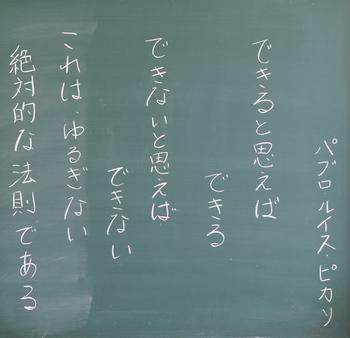 パブロ ルイス・ピカソ
できると思えば
できる
できないと思えば
できない
これは、ゆるぎない
絶対的な法則である